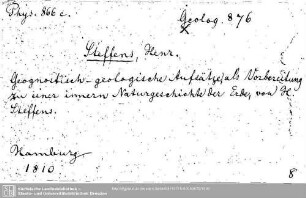 Phys. 866 c.
Geolog. 876
X
Steffens, Henr.
Geognostisch-geologische Aufsätze, als Vorbereitung
zu einer innern Naturgeschichte der Erde, von H.
Steffens.
Hamburg
1810
8
Sächsische Landesbibliothek -
Staats- und Universitätsbibliothek Dresden